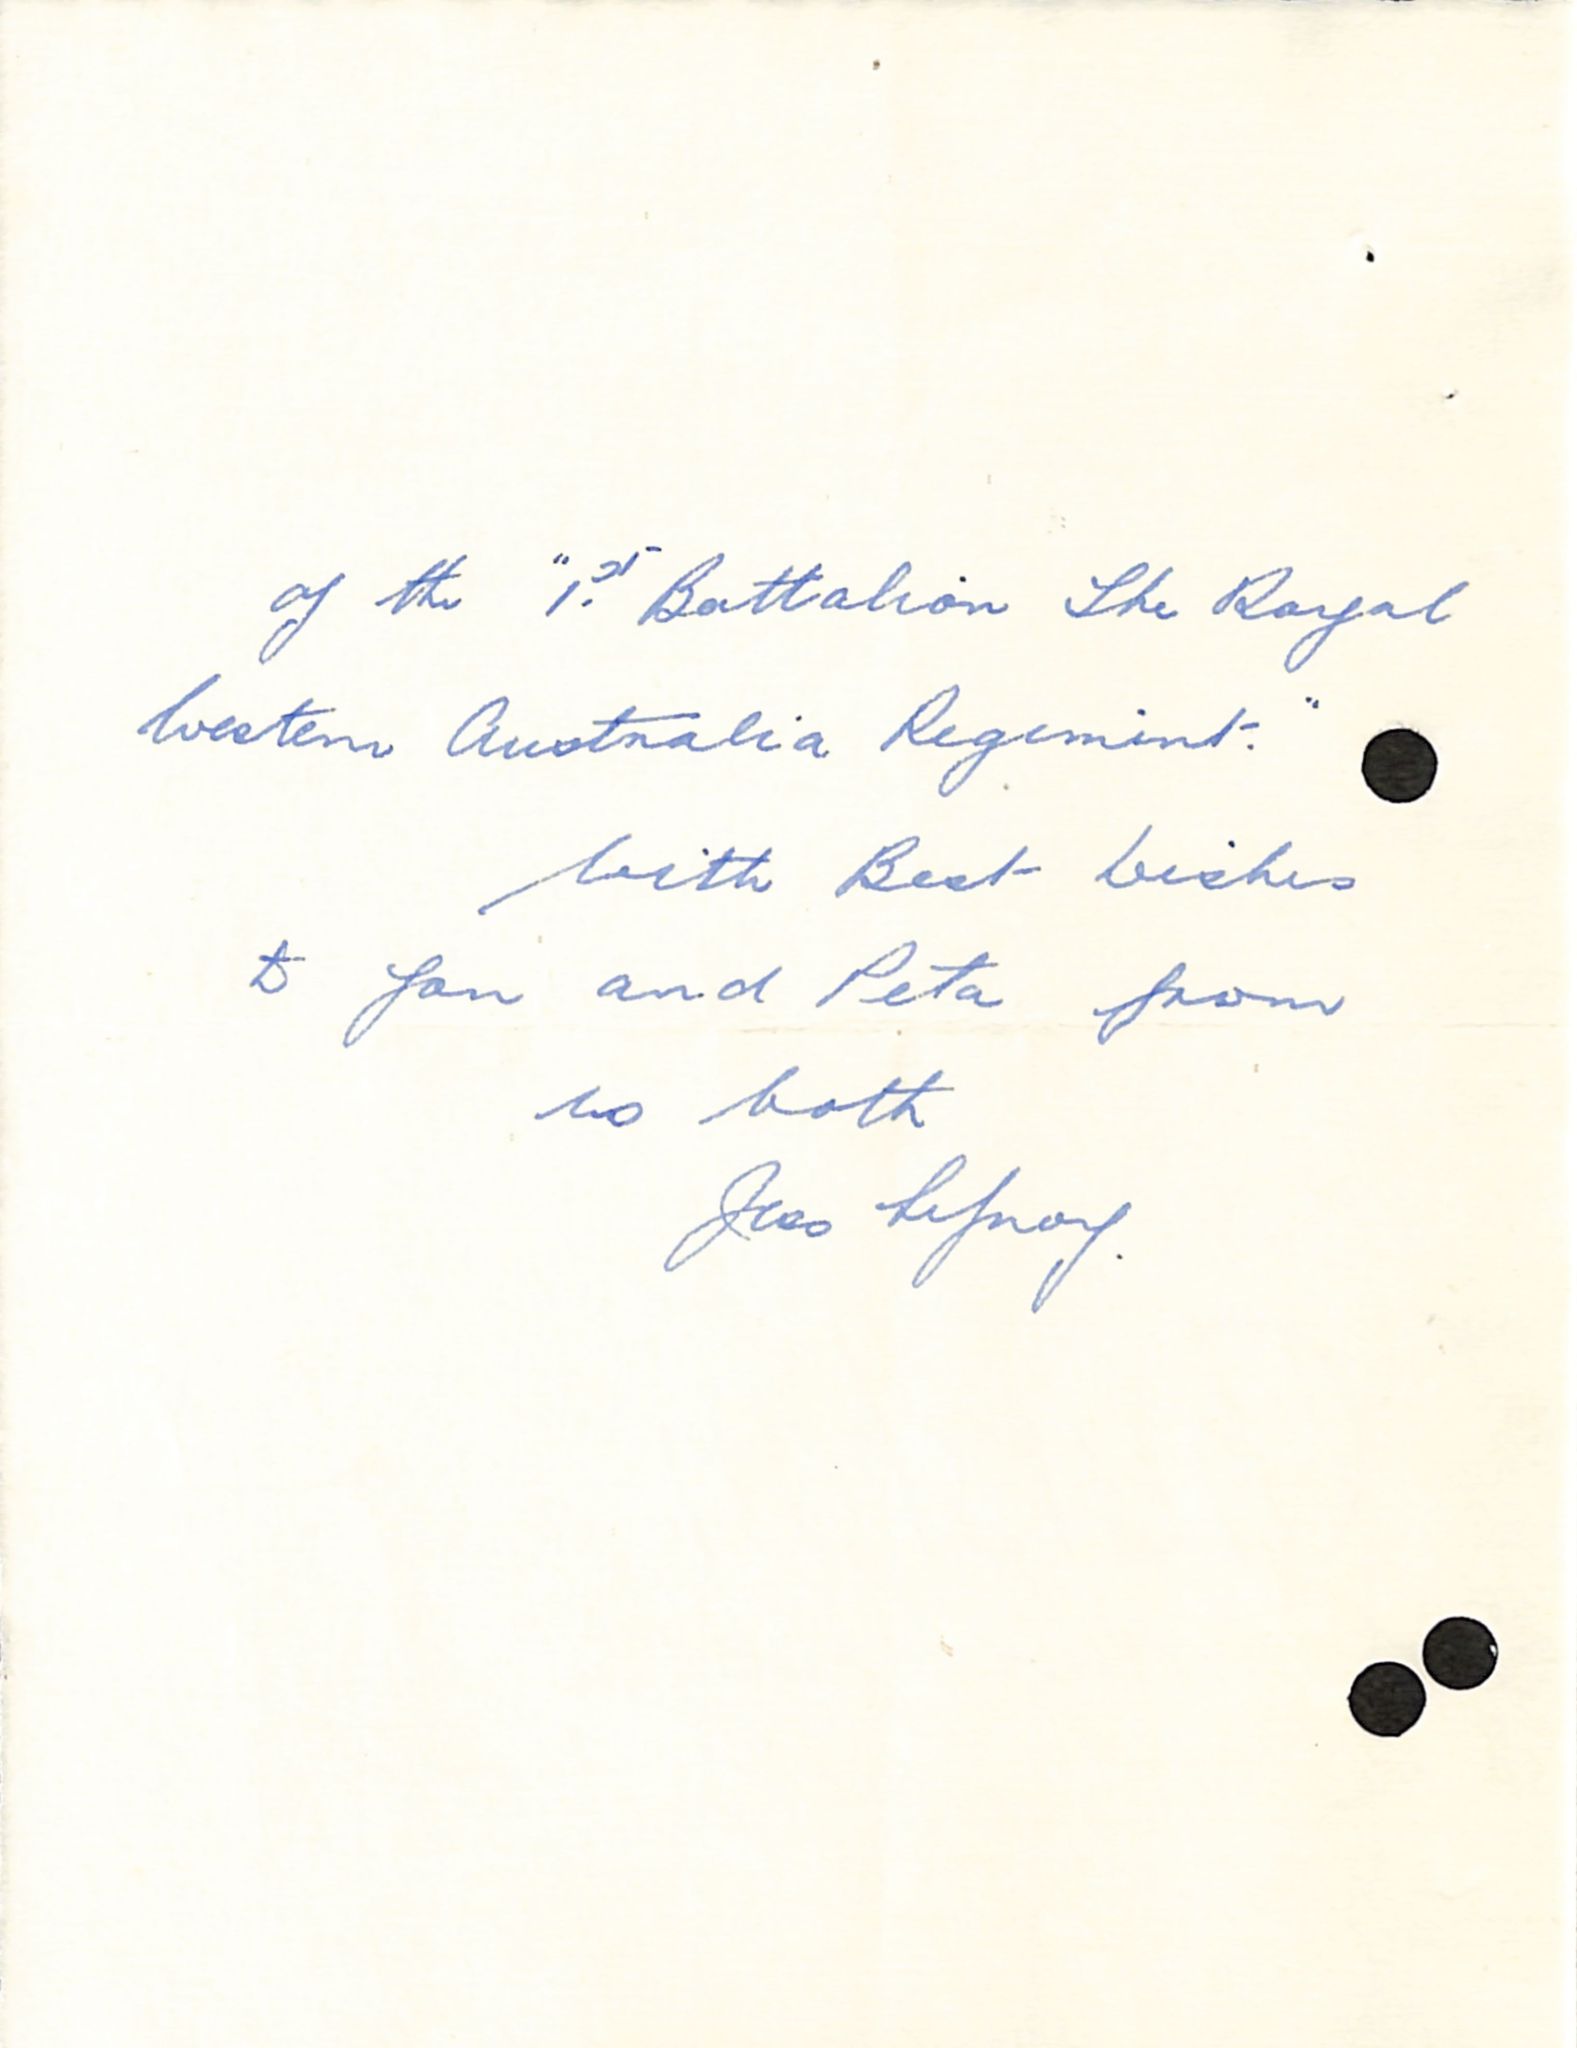 of the "1st Battalion The Royal
Western Australia Regiment."
With Best Wishes
to you and Peta from
us both
Jess Lefroy.